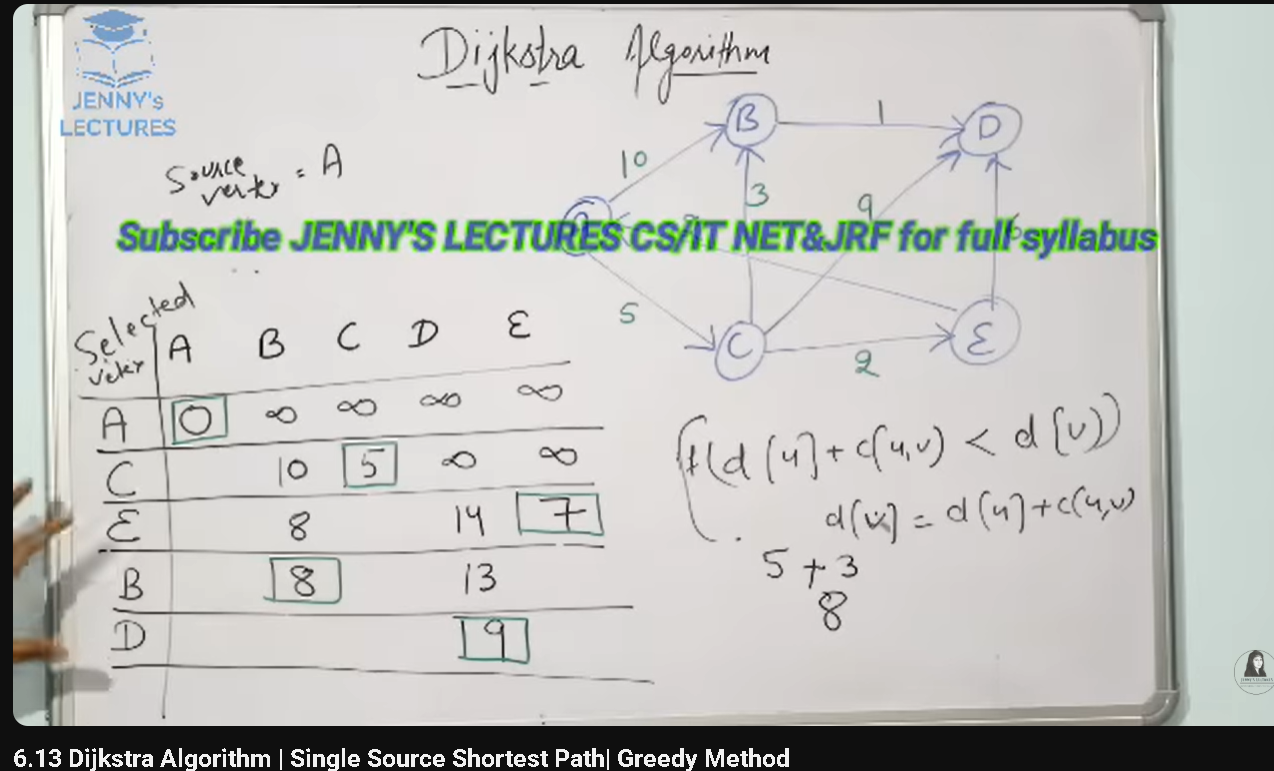 JENNY's
LECTURES
Dijkstra Algorithm
Source vertex = A
B
1
D
10
3
9
Subscribe JENNY'S LECTURES CS/IT NET&JRF for full syllabus
5
C
2
E
Selected vertex A B C D E
A 0 ∞ ∞ ∞ ∞
C 10 5 ∞ ∞
E 8 14 7
B 8 13
D 9
if(d[u]+c(u,v) < d[v])
d[v] = d[u]+c(u,v)
5+3
8
6.13 Dijkstra Algorithm | Single Source Shortest Path| Greedy Method